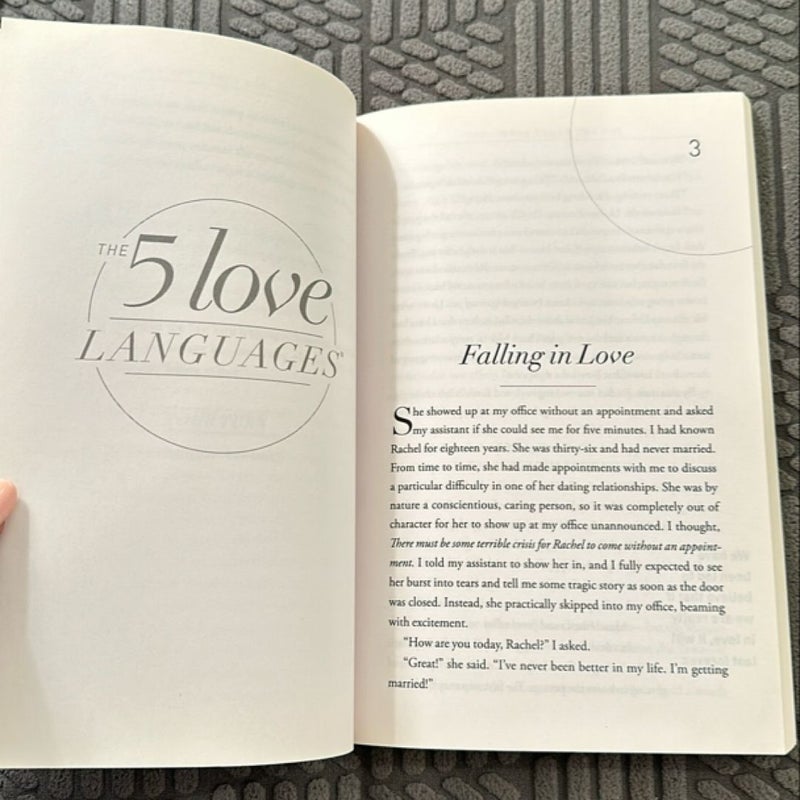 THE
5 love
LANGUAGES®
3
Falling in Love
She showed up at my office without an appointment and asked
my assistant if she could see me for five minutes. I had known
Rachel for eighteen years. She was thirty-six and had never married.
From time to time, she had made appointments with me to discuss
a particular difficulty in one of her dating relationships. She was by
nature a conscientious, caring person, so it was completely out of
character for her to show up at my office unannounced. I thought,
There must be some terrible crisis for Rachel to come without an appoint-
ment. I told my assistant to show her in, and I fully expected to see
her burst into tears and tell me some tragic story as soon as the door
was closed. Instead, she practically skipped into my office, beaming
with excitement.
“How are you today, Rachel?” I asked.
“Great!” she said. “I’ve never been better in my life. I’m getting
married!”